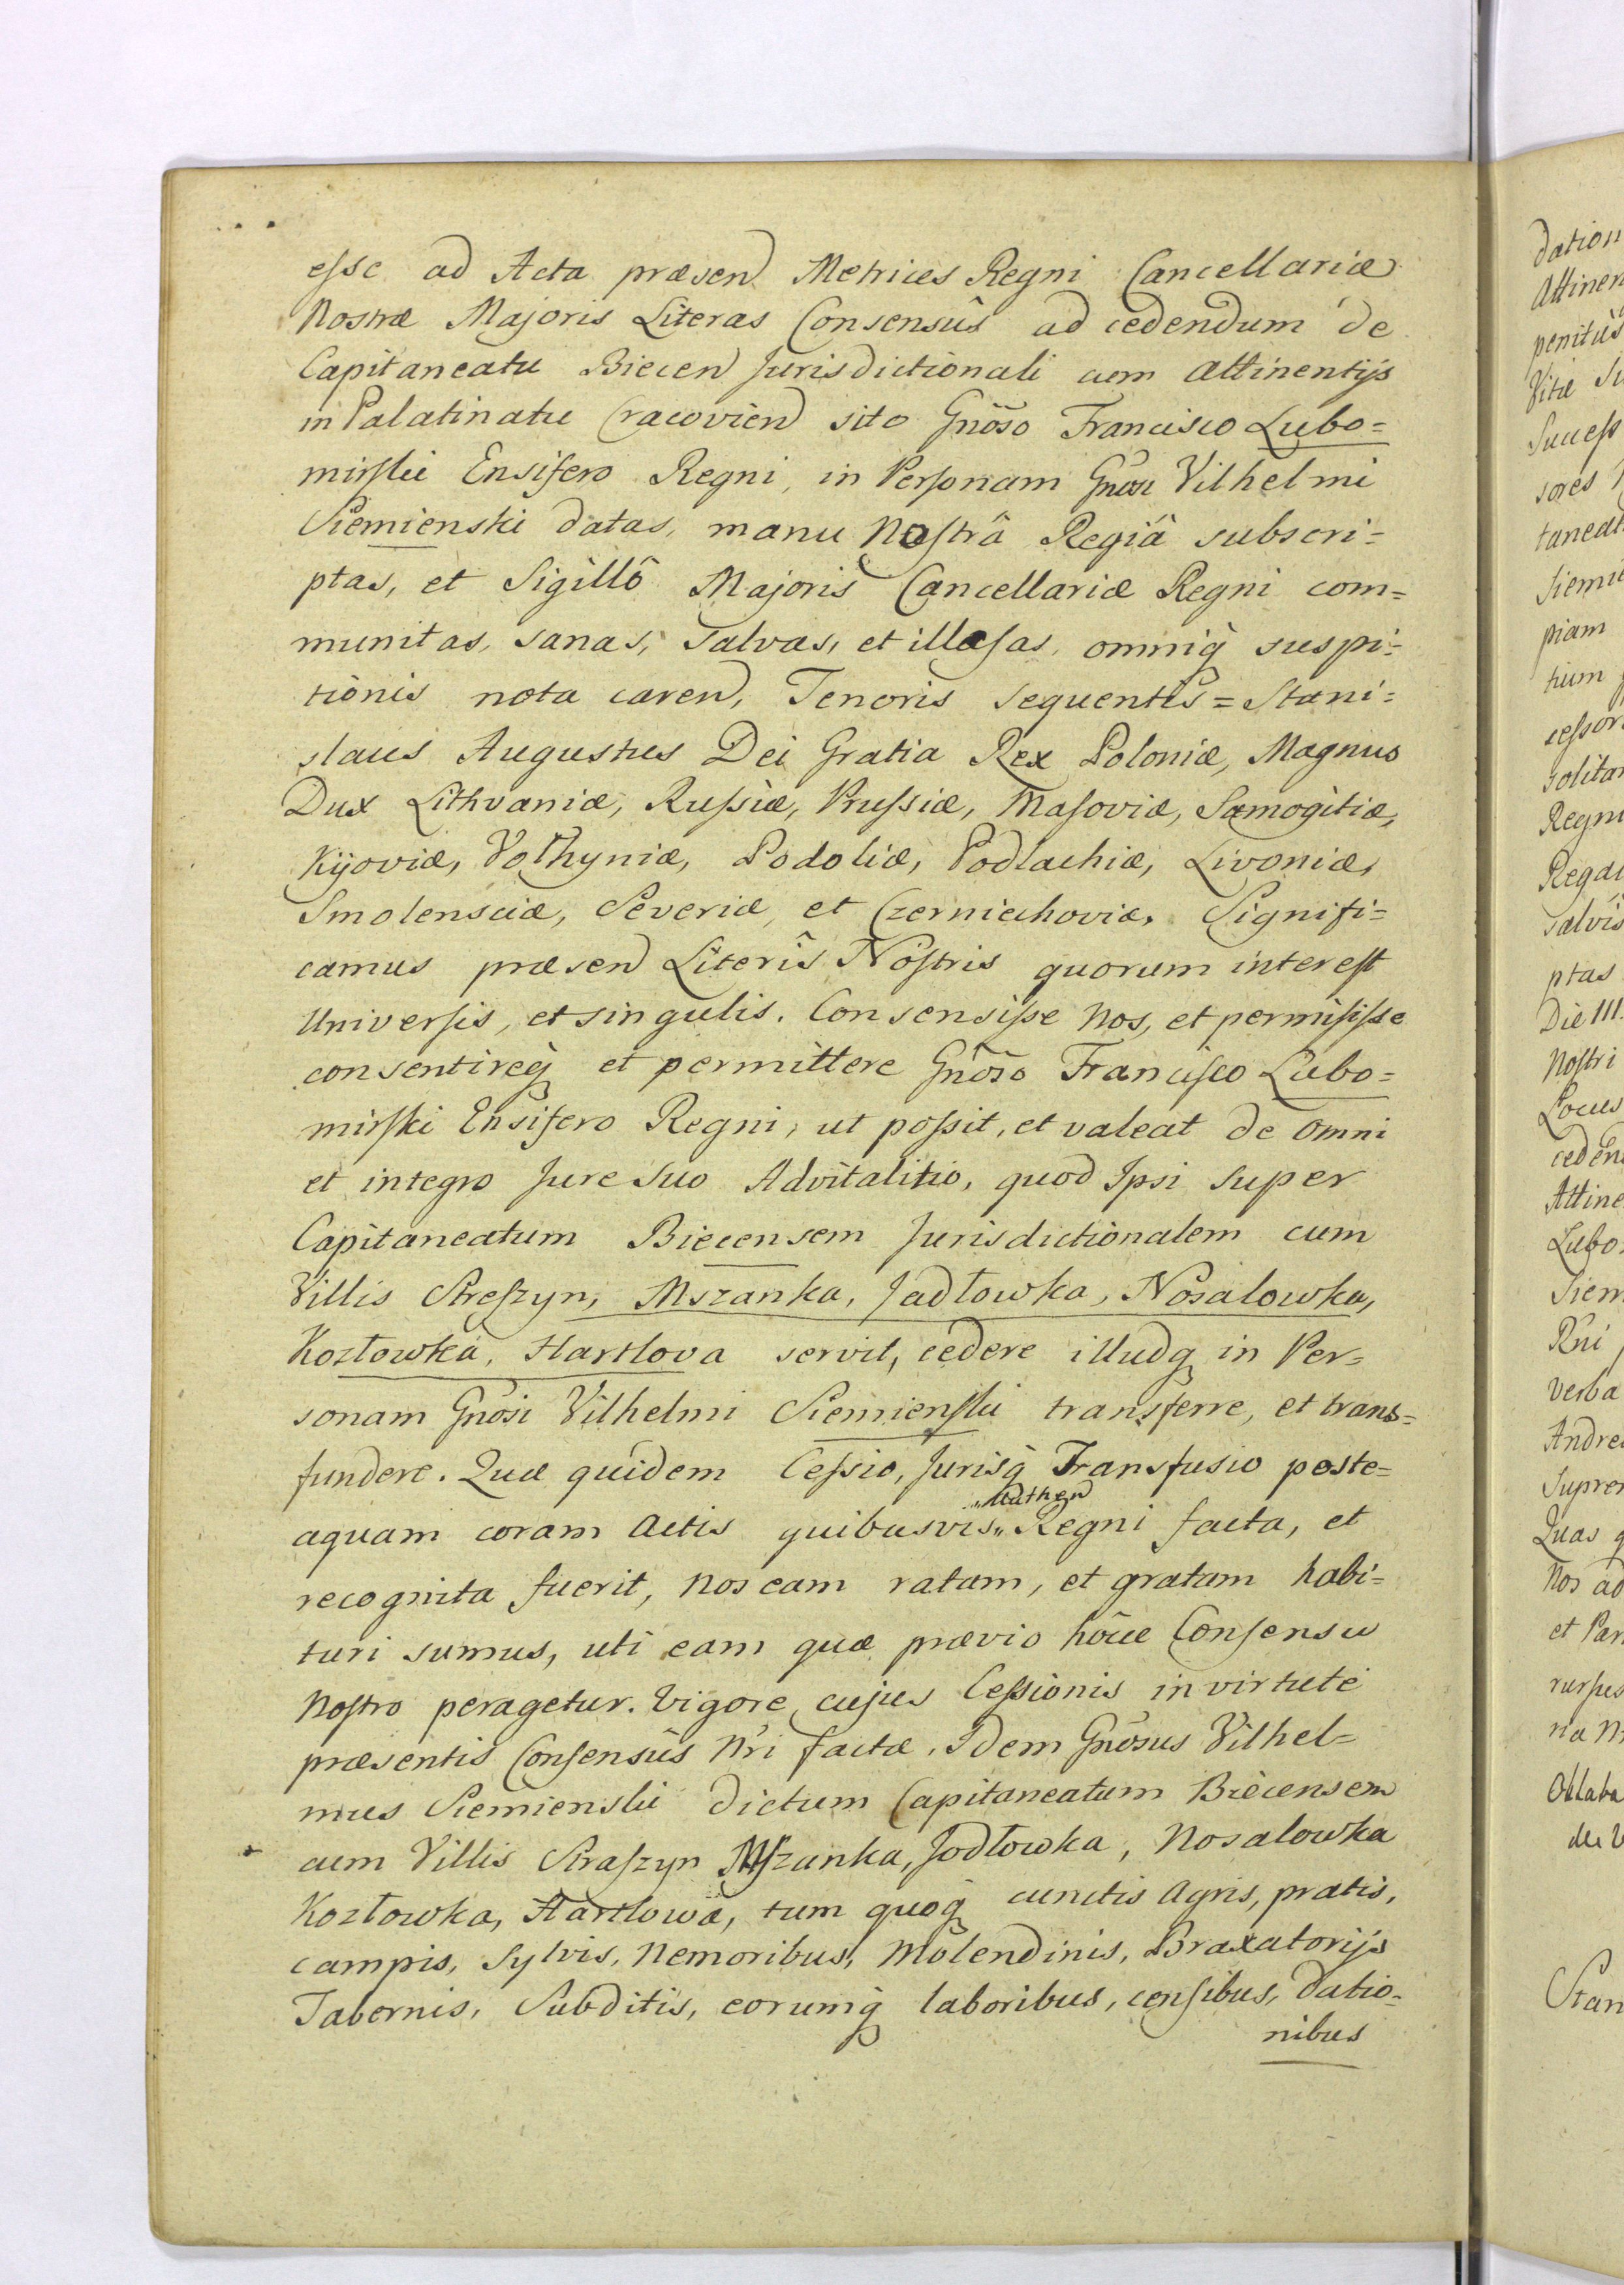 esse ad Acta præsen Metrices Regni Cancellariæ
Nostræ Majoris Literas Consensûs ad cedendum de
Capitaneatu Biecen Jurisdictionali cum attinentijs
in Palatinatu Cracovien sito Gnôso Francisco Lubo=
mirski Ensifero Regni, in Personam Gnosi Vilhelmi
Siemienski datas, manu Nostrâ Regiâ subscri=
ptas, et Sigillô Majoris Cancellariæ Regni com=
munitas, sanas, salvas, et illæsas, omniq suspi=
tionis nota caren, Tenoris sequentis = Stani=
slaus Augustus Dei Gratia Rex Poloniæ, Magnus
Dux Lithvaniæ, Russiæ, Prussiæ, Masoviæ, Samogitiæ,
Kijoviæ, Volhyniæ, Podoliæ, Podlachiæ, Livoniæ,
Smolensciæ, Severiæ, et Czerniechoviæ. Signifi=
camus præsen Literis Nostris quorum interest
Universis, et singulis. Consensisse Nos, et permisisse
consentireq et permittere Gnôso Francisco Lubo=
mirski Ensifero Regni, ut possit, et valeat de omni
et integro Jure suo Advitalitio, quod Ipsi super
Capitaneatum Biecensem Jurisdictionalem cum
Villis Streszyn, Mszanka, Jadłowka, Nosalowka,
Kozłowka, Hartlova servit, cedere illudq in Per=
sonam Gnosi Vilhelmi Siemienski transferre, et trans=
fundere. Quæ quidem Cessio, Jurisq Transfusio poste=
„Authen
aquam coram Actis quibusvis „ Regni facta, et
recognita fuerit, nos eam ratam, et gratam habi=
turi sumus, uti eam quæ prævio hôce Consensu
Nostro peragetur. Vigore cujus Cessionis in virtute
præsentis Consensûs Nri factæ. Idem Gnosus Vilhel=
mus Siemienski dictum Capitaneatum Biecensem
cum Villis Straszyn Mszanka, Jodłowka, Nosalowka
Kozłowka, Hartlowa, tum quoq cunctis Agris, pratis,
campis, Sylvis, Nemoribus, Molendinis, Braxatorijs
Tabernis, Subditis, eorumq laboribus, censibus, datio=
nibus